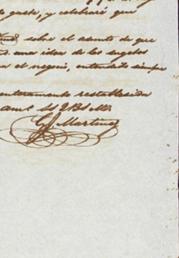 gusto, y celebraré que
sobre el asunto de que
una idea de los sugetos
el negocio, entendido siempre
enteramente restablecido
am.º Q B S M
Martinez